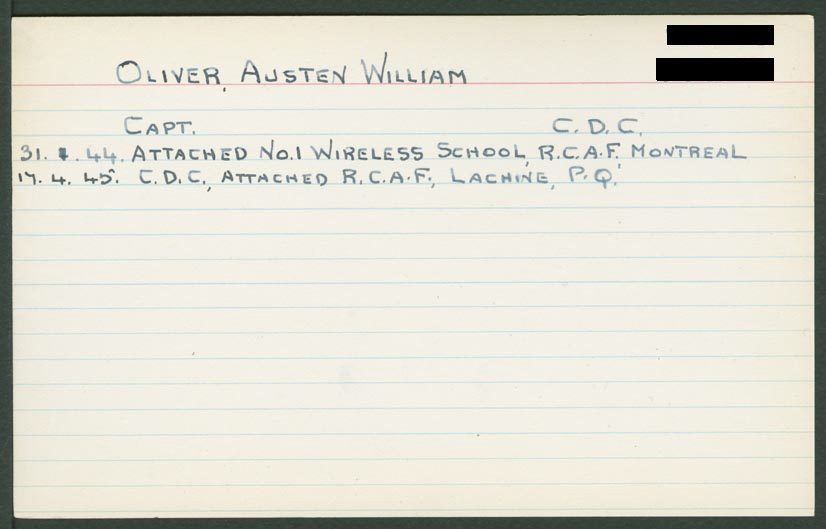 OLIVER, AUSTEN WILLIAM
CAPT. C. D. C.
31. . 44. ATTACHED NO.1 WIRELESS SCHOOL, R.C.A.F. MONTREAL
17. 4. 45. C.D.C., ATTACHED R.C.A.F., LACHINE, P.Q.